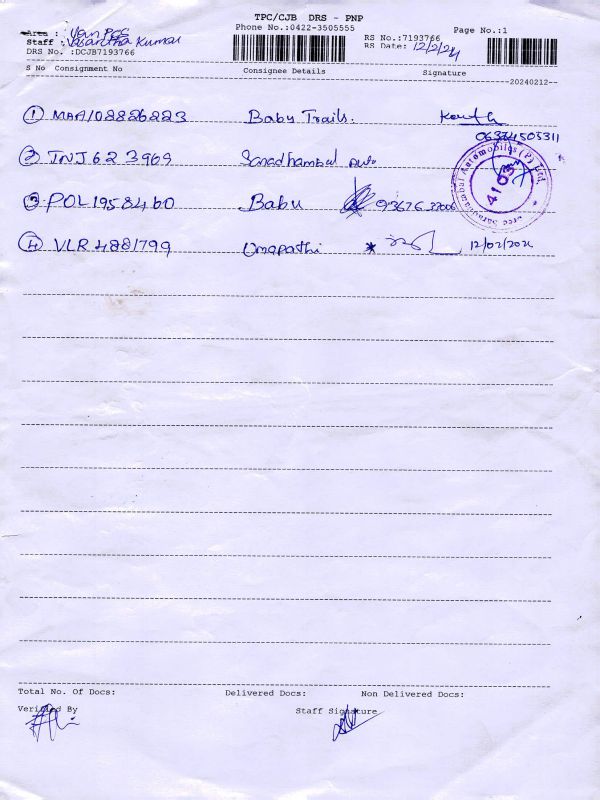 TPC/CJB DRS - PNP
Area :
Phone No.:0422-3505555
Page No.:1
Staff : Vasantha Kumar
RS No.:7193766
DRS No. :DCJB7193766
RS Date: 12/2/24
S No Consignment No Consignee Details Signature
20240212--
1 MAA108826223 Baby Trails.
06374503311
2 TNJ623969
3 POL1958460 Babu
4 VLR4881799 Umapathi 12/02/2024
Sree Saradhambal Automobiles (P) Ltd.
4103
Total No. Of Docs: Delivered Docs: Non Delivered Docs:
Verified By Staff Signature